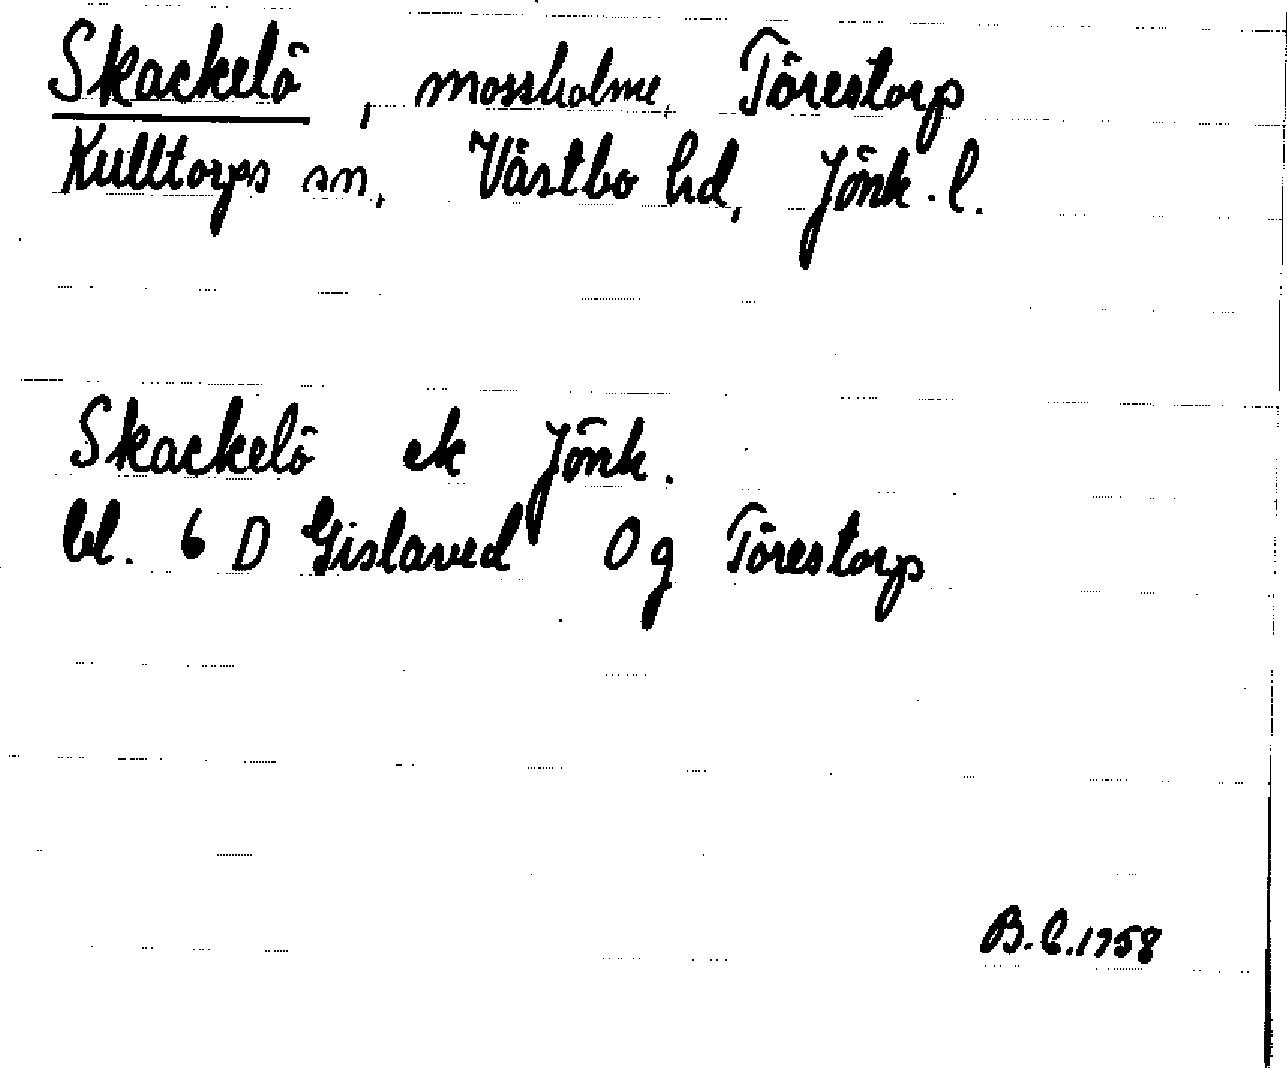 Skackelö, mosskolme, Törestorp
Kulltorps sn, Västbo hd, Jönk. l.
Skackelö ek Jönk.
bl. 6 D Gislaved 0g Törestorp
B.C. 1958